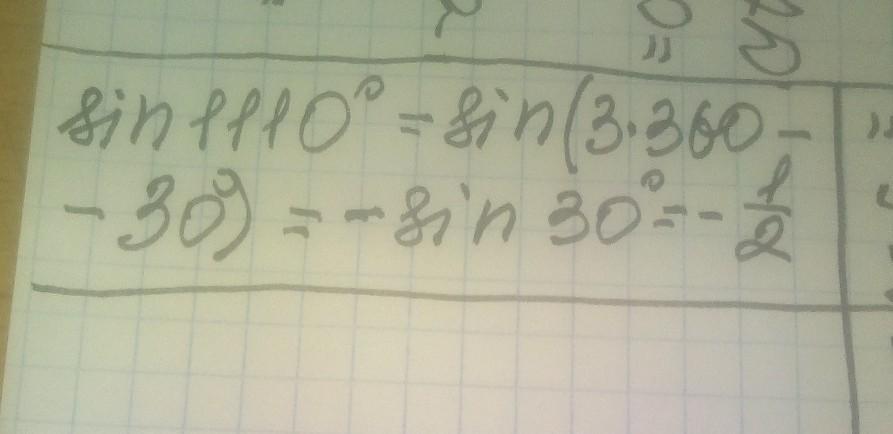 sin 1110° = sin(3·360 -
- 30°) = - sin 30° = - 1/2